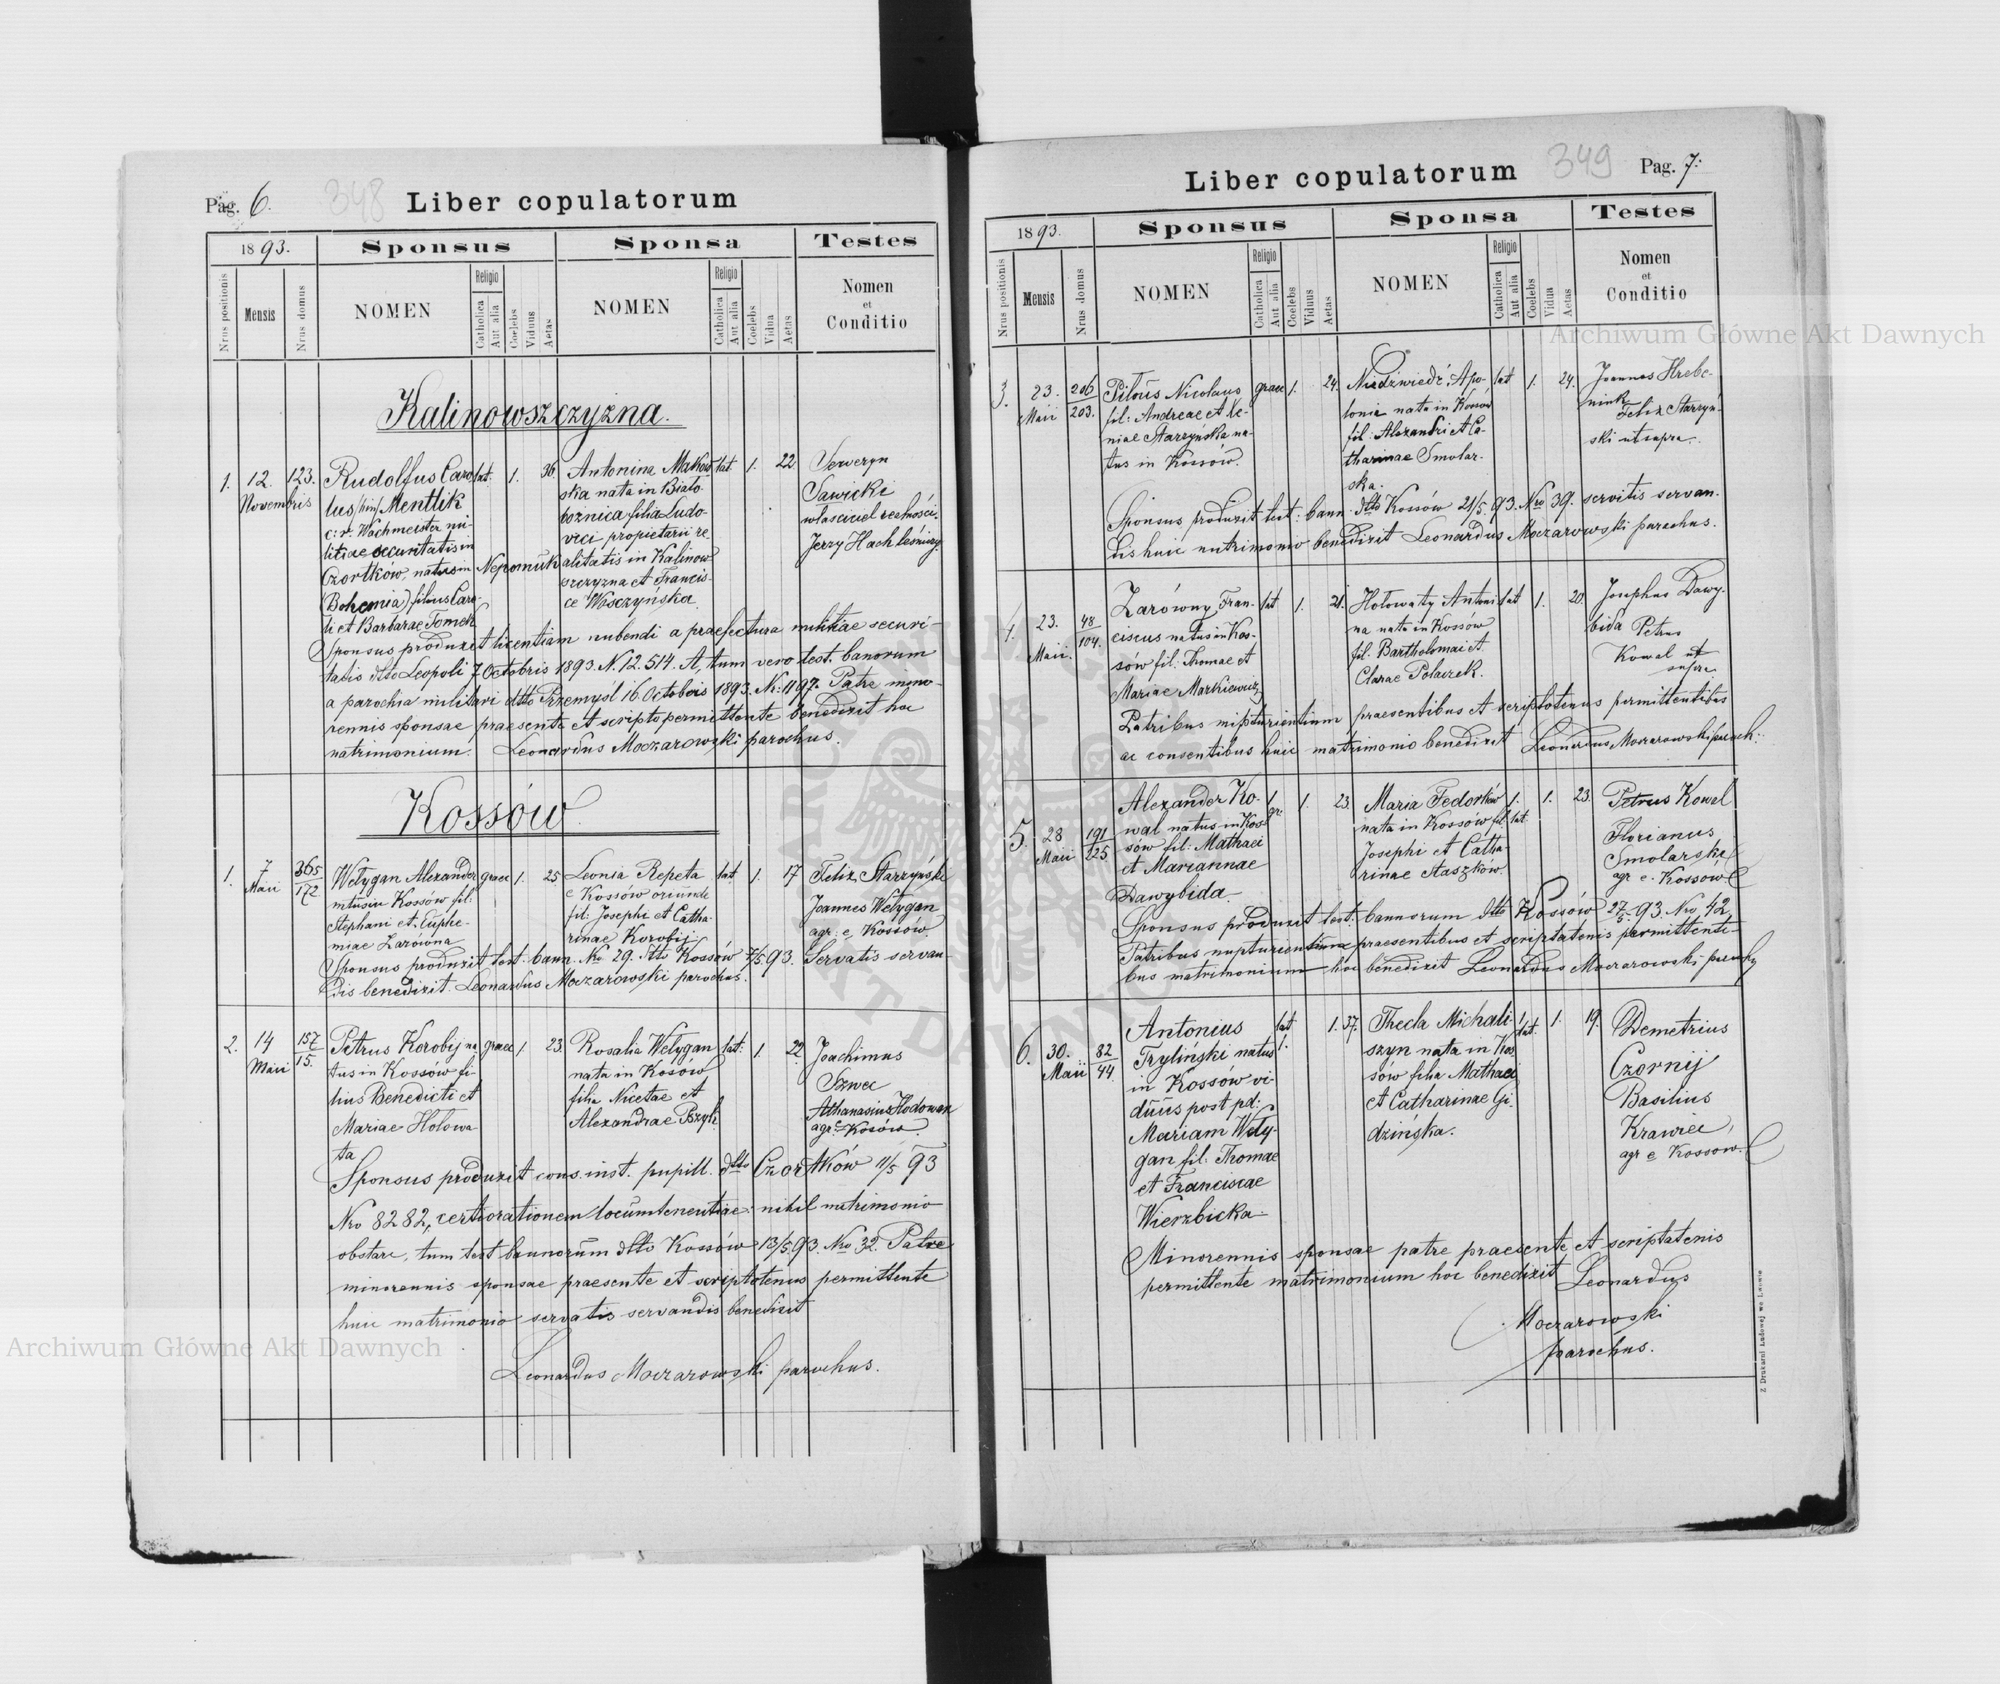 Pag. 6.
348
Liber copulatorum
1893.
Sponsus
Sponsa
Testes
Nrus positionis
Mensis
Nrus domus
NOMEN
Religio
Catholica
Aut alia
Coelebs
Viduus
Aetas
NOMEN
Religio
Catholica
Aut alia
Coelebs
Vidua
Aetas
Nomen
et
Conditio
Kalinowszczyzna.
1. 12. Novembris 123.
Rudolfus Caro-
lus /bin/ Mentlik
c: r. Wachmeister mi-
litiae securitatis in
Czortków, natus in Nepomŭk
(Bohemia) filius Caro-
li et Barbarae Tomek
lat. 1. 36.
Antonina Makow
ska nata in Biało-
bożnica filia Ludo-
vici propietarii re
alitatis in Kalinow
szczyzna et Francis-
ce Woszczyńska.
lat. 1. 22
Serweryn
Sawicki
własciciel realności.
Jerzy Hach leśniczy.
Sponsus produxit licentiam nubendi a praefectura militiae securi-
tatis dtto Leopoli 7 Octobris 1893. N. 12.514. A, tum vero test. banorum
a parochia militari dtto Przemyśl 16 Octobris 1893. Nr: 1197. Patre mino-
rennis sponsae praesente et scripto permittente benedixit hoc
matrimonium. Leonardus Moczarowski parochus.
Kossów.
1. 7 Maii 365/172
Wełygan Alexander
natus in Kossów fil:
Stephani et Euphe-
miae Zarówna
graec 1. 25
Leonia Repeta
e Kossów oriunde
fil: Josephi et Catha-
rinae Korobij.
lat. 1. 17
Felix Starzyński
Joannes Wełygan
agr: e Kossów.
Sponsus produxit test: bann. Nro 29. dtto Kossów 7/5 93. Servatis servan-
dis benedixit. Leonardus Moczarowski parochus.
2. 14 Maii 157/15.
Petrus Korobij na
tus in Kossów fi-
lius Benedicti et
Mariae Hołowa
ta
graec 1. 23.
Rosalia Wełygan
nata in Kosów
filia Nicetae et
Alexandrae Bzyk
lat: 1. 22
Joachimus
Szwec
Athanasius Hodowan
agr: e Kosów.
Sponsus produxit cons. inst. pupill. dtto Czortków 11/5 93
Nro 8282, certiorationem locumtenentiae: nihil matrimonio
obstare, tum test bannorŭm dtto Kossów 13/5 93. Nro 32. Patre
minorennis sponsae praesente et scriptotenus permittente
huic matrimonio servatis servandis benedixit
Leonardus Moczarowski parochus.
349
Pag. 7.
Liber copulatorum
1893.
Sponsus
Sponsa
Testes
Nrus positionis
Mensis
Nrus domus
NOMEN
Religio
Catholica
Aut alia
Coelebs
Viduus
Aetas
NOMEN
Religio
Catholica
Aut alia
Coelebs
Vidua
Aetas
Nomen
et
Conditio
3. 23. Maii 206/203.
Piłŭs Nicolaus
fil: Andreae et Xe-
niae Starzyńska na-
tus in Kossów.
graec 1. 24.
Niedźwiedź Apo-
lonia nata in Kossow
fil: Alexandri et Ca-
tharinae Smolar-
ska.
lat 1. 24.
Joannes Hrebe-
niuk
Felix Starzyń-
ski ut supra.
Sponsus produxit test: bann. dtto Kossów 21/5 93. Nro 39. servitis servan-
dis huic nutrimonio benedixit Leonardus Moczarowski parochus.
4. 23. Maii. 48/104.
Zarówny Fran-
ciscus natus in Kos-
sów fil: Thomae et
Mariae Markiewicz
lat 1. 21.
Hołowaty Antoni
na nata in Kossów
fil: Bartholomai et
Clarae Polaczek.
lat 1. 20.
Josephus Dawy-
bida Petrus
Kowal ut
supra.
Patribus nupturientium praesentibus et scriptotenus permittentibus
ac consentibus huic matrimonio benedixit Leonardus Moczarowski paroch:
5. 28 Maii 191/225
Alexander Ko-
wal natus in Kos-
sów fil: Mathaei
et Mariannae
Dawybida.
1. gr. 1. 23.
Maria Fedorków
nata in Kossów fil:
Josephi et Catha-
rinae Staszków.
1. lat. 1. 23.
Petrus Kowal
Florianus
Smolarski
agr e. Kossow
Sponsus produxit test: bannorum dtto Kossów 27/5 93. Nro 42
Patribus nupturientium praesentibus et scriptatenis permittenti-
bus matrimonium hoc benedixit Leonardus Moczarowski
6. 30. Maii 82/44
Antonius
Tryliński natus
in Kossów vi-
dŭŭs post pd:
Mariam Wely-
gan fil: Thomae
et Franciscae
Wierzbicka.
lat 1. 1. 37.
Thecla Michali
szyn nata in Kos
sów filia Mathaei
et Catharinae Gi-
dzińska.
1. lat. 1. 19.
Demetrius
Czornij
Basilius
Krawiec,
agr e Kossow.
Minorennis sponsae patre praesente et scriptatenis
permittente matrimonium hoc benedixit Leonardus
Moczarowski
parochus.
Z Drukarni Ludowej we Lwowie
Archiwum Główne Akt Dawnych
Archiwum Główne Akt Dawnych